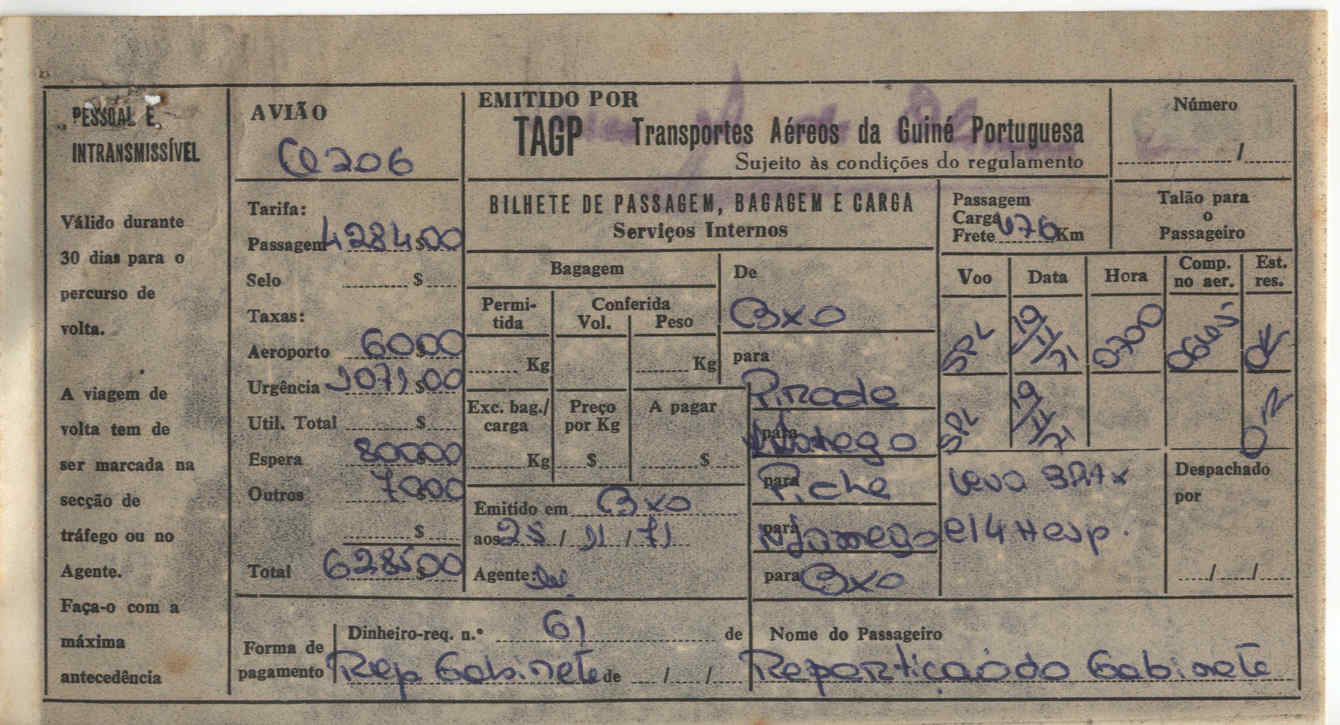 PESSOAL E
INTRANSMISSÍVEL
Válido durante
30 dias para o
percurso de
volta.
A viagem de
volta tem de
ser marcada na
secção de
tráfego ou no
Agente.
Faça-o com a
máxima
antecedência
AVIÃO
CQ206
Tarifa:
Passagem 4284$00
Selo $
Taxas:
Aeroporto 60$00
Urgência 1071$00
Util. Total $
Espera 800$00
Outros 70$00
$
Total 6285$00
EMITIDO POR
TAGP Transportes Aéreos da Guiné Portuguesa
Sujeito às condições do regulamento
Número
/
BILHETE DE PASSAGEM, BAGAGEM E CARGA
Serviços Internos
Passagem
Carga
Frete 476 Km
Talão para
o
Passageiro
Bagagem
Permi-
tida
Conferida
Vol. Peso
Kg Kg
Exc. bag./
carga
Preço
por Kg
A pagar
Kg $ $
Emitido em BXO
aos 25 / 11 / 71
Agente:
De
BXO
para
Pirada
para
para
Piche
para
para BXO
Voo Data Hora Comp.
no aer. Est.
res.
SPL 19/11/71 0700 OK
SPL 19/11/71
Leva
e 14 Hesp.
Despachado
por
/ /
Forma de
pagamento
Dinheiro-req. n.º 61 de
Rep Gabinete de / /
Nome do Passageiro
Repartição do Gabinete